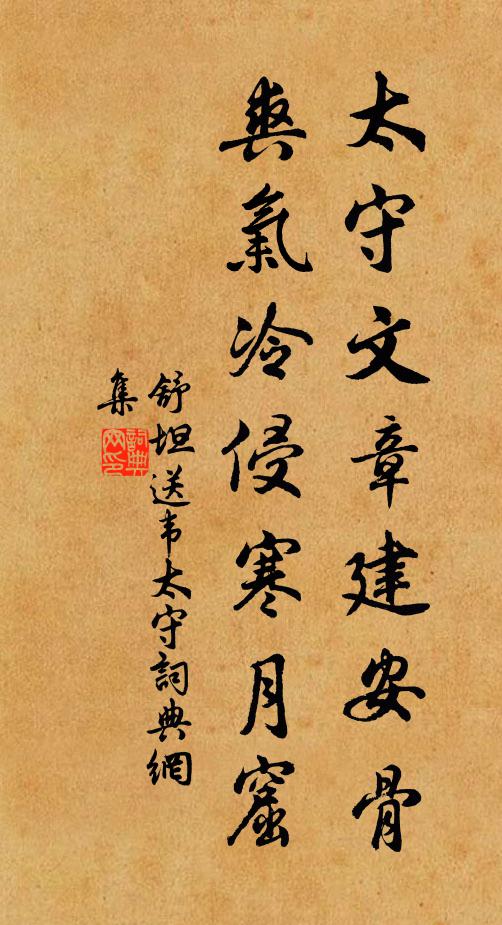 太守文章建安骨
爽氣冷侵寒月窟
舒坦送韦太守詞典網
集
詞典
网印